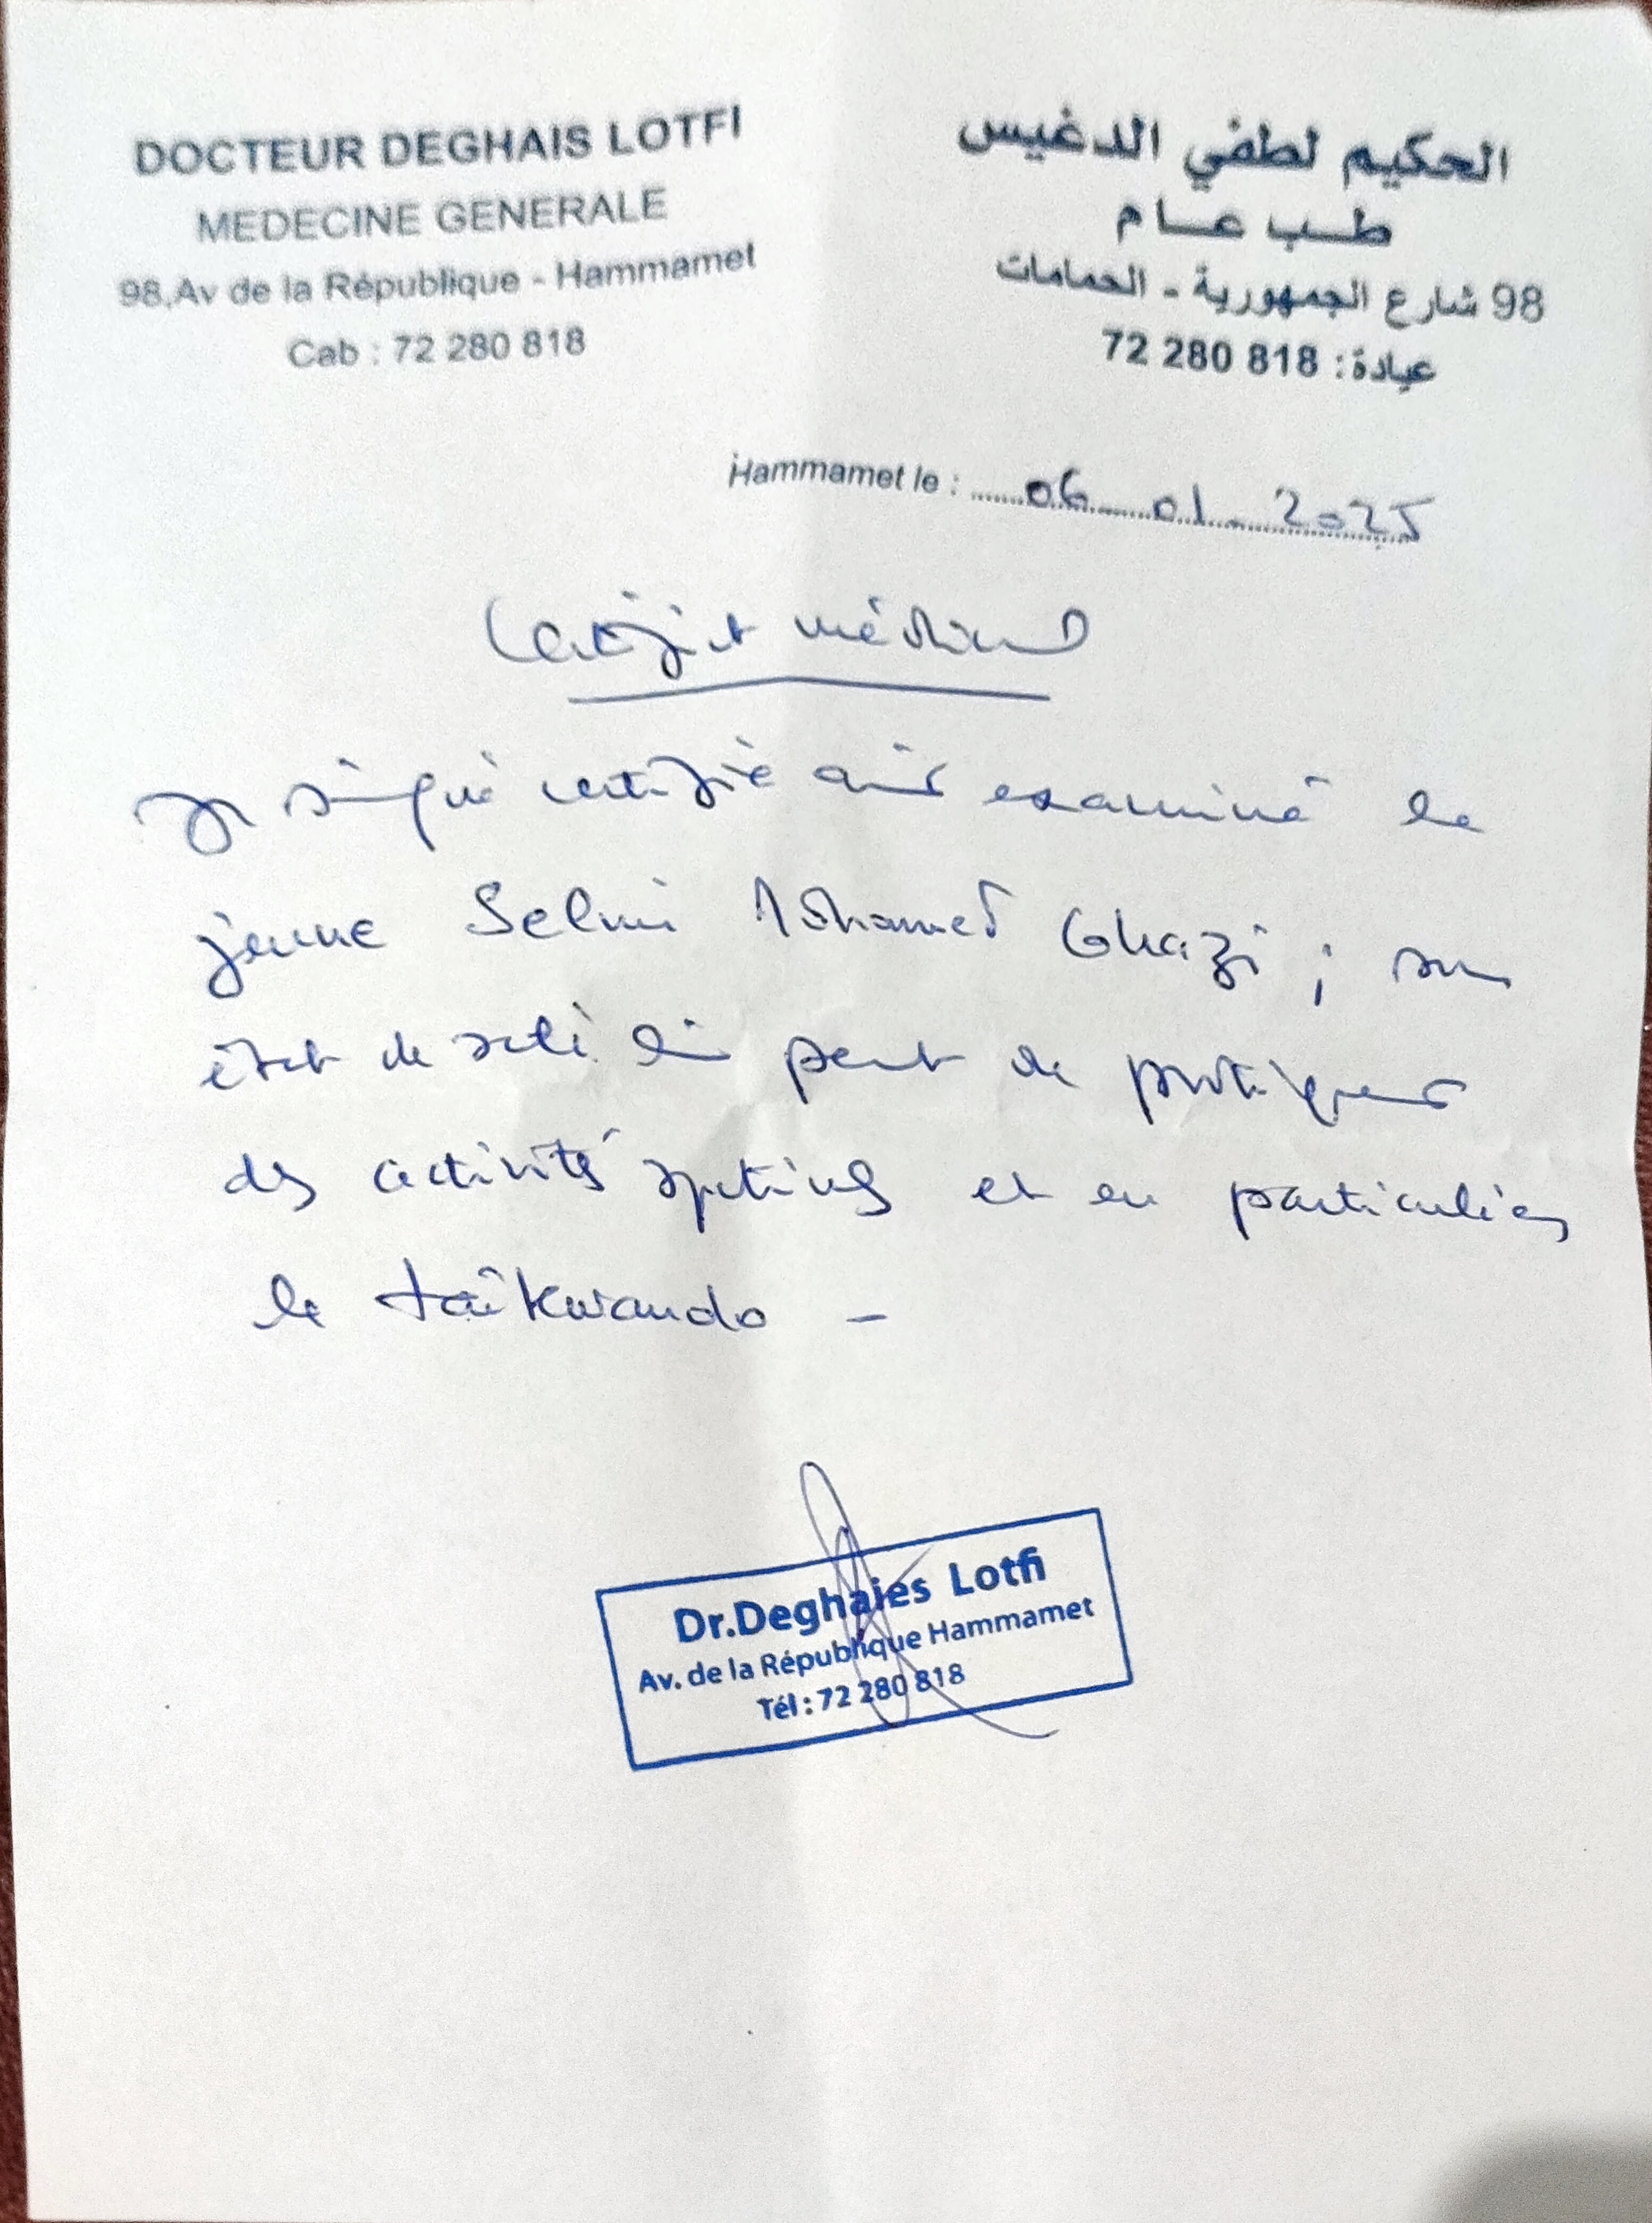 DOCTEUR DEGHAIS LOTFI
MEDECINE GENERALE
98,Av de la République - Hammamet
Cab : 72 280 818
الحكيم لطفي الدغيس
طب عام
98 شارع الجمهورية - الحمامات
عيادة: 818 280 72
Hammamet le : 06 01 - 2025
Certificat médical
Je signé certifie avoir examiné le
jeune Selmi Mohamed Ghazi ; son
état de santé lui permet de pratiquer
des activités sportives et en particulier
le taîkwando -
Dr.Deghaies Lotfi
Av. de la République Hammamet
Tél : 72 280 818